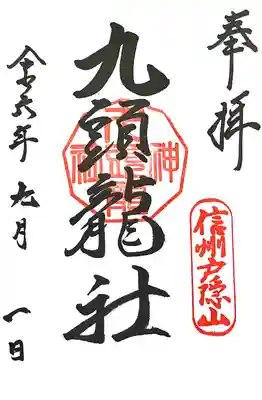 奉拝
信州戸隠山
九頭龍社
令和六年九月一日